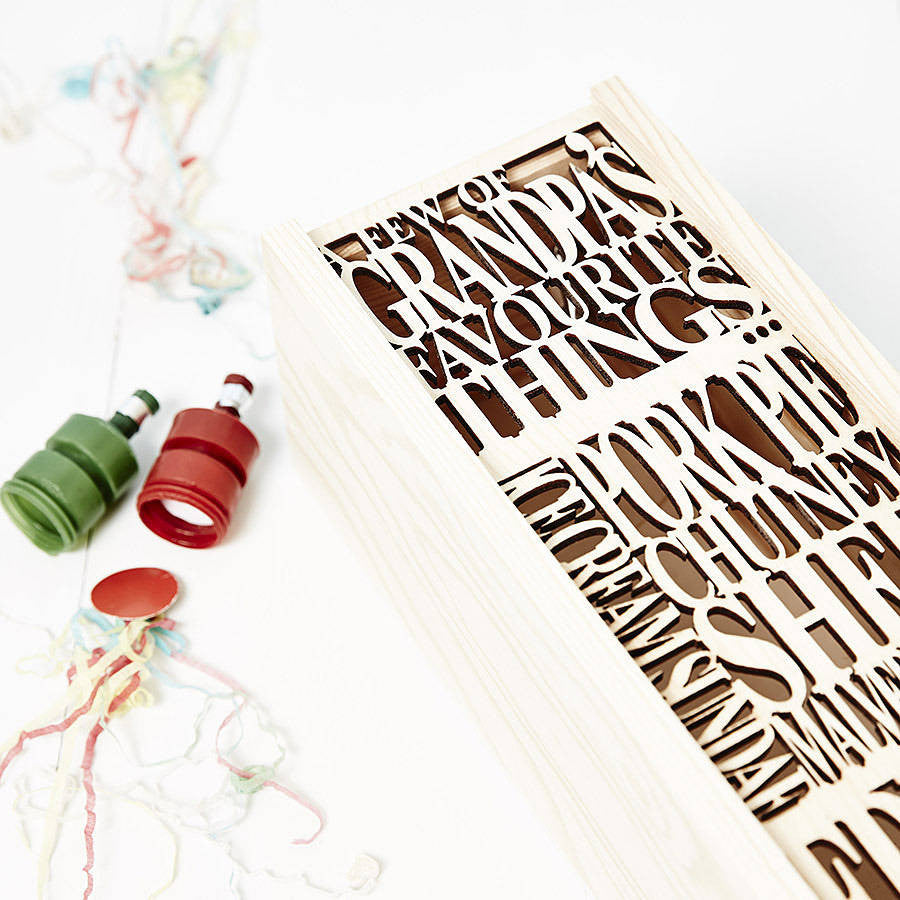 A FEW OF
GRANDPA'S
FAVOURITE
THINGS...
PORK PIE
CHUTNEY
ICE CREAM SUNDAE